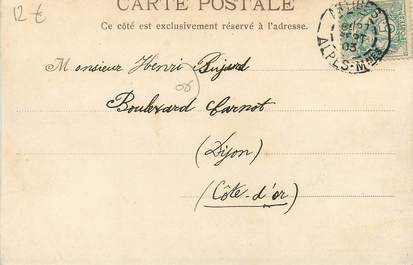 12 €
CARTE POSTALE
Ce côté est exclusivement réservé à l'adresse.
ALPES-Mmes
03
Monsieur Henri Bujard
Boulevard Carnot
(Dijon)
(Côte-d'or)